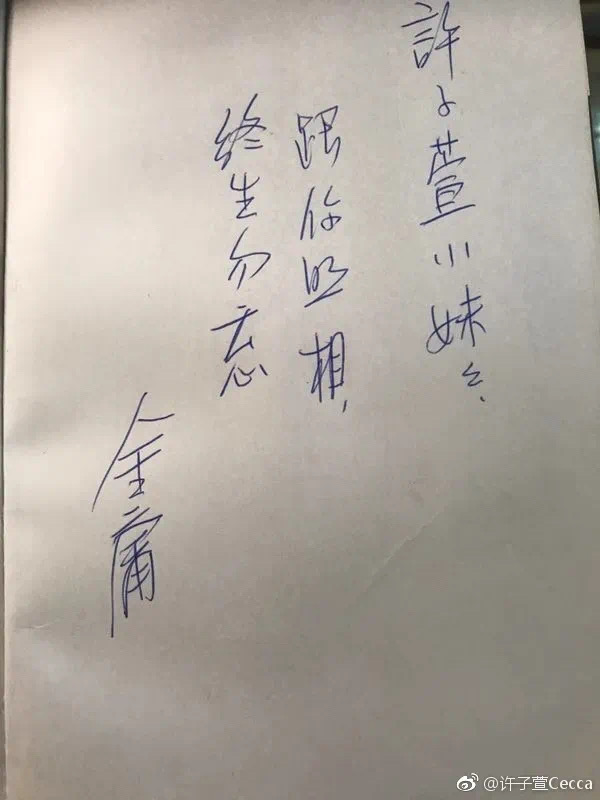 許子萱小妹々、
跟你照相，
终生勿忘
金庸
@许子萱Cecca